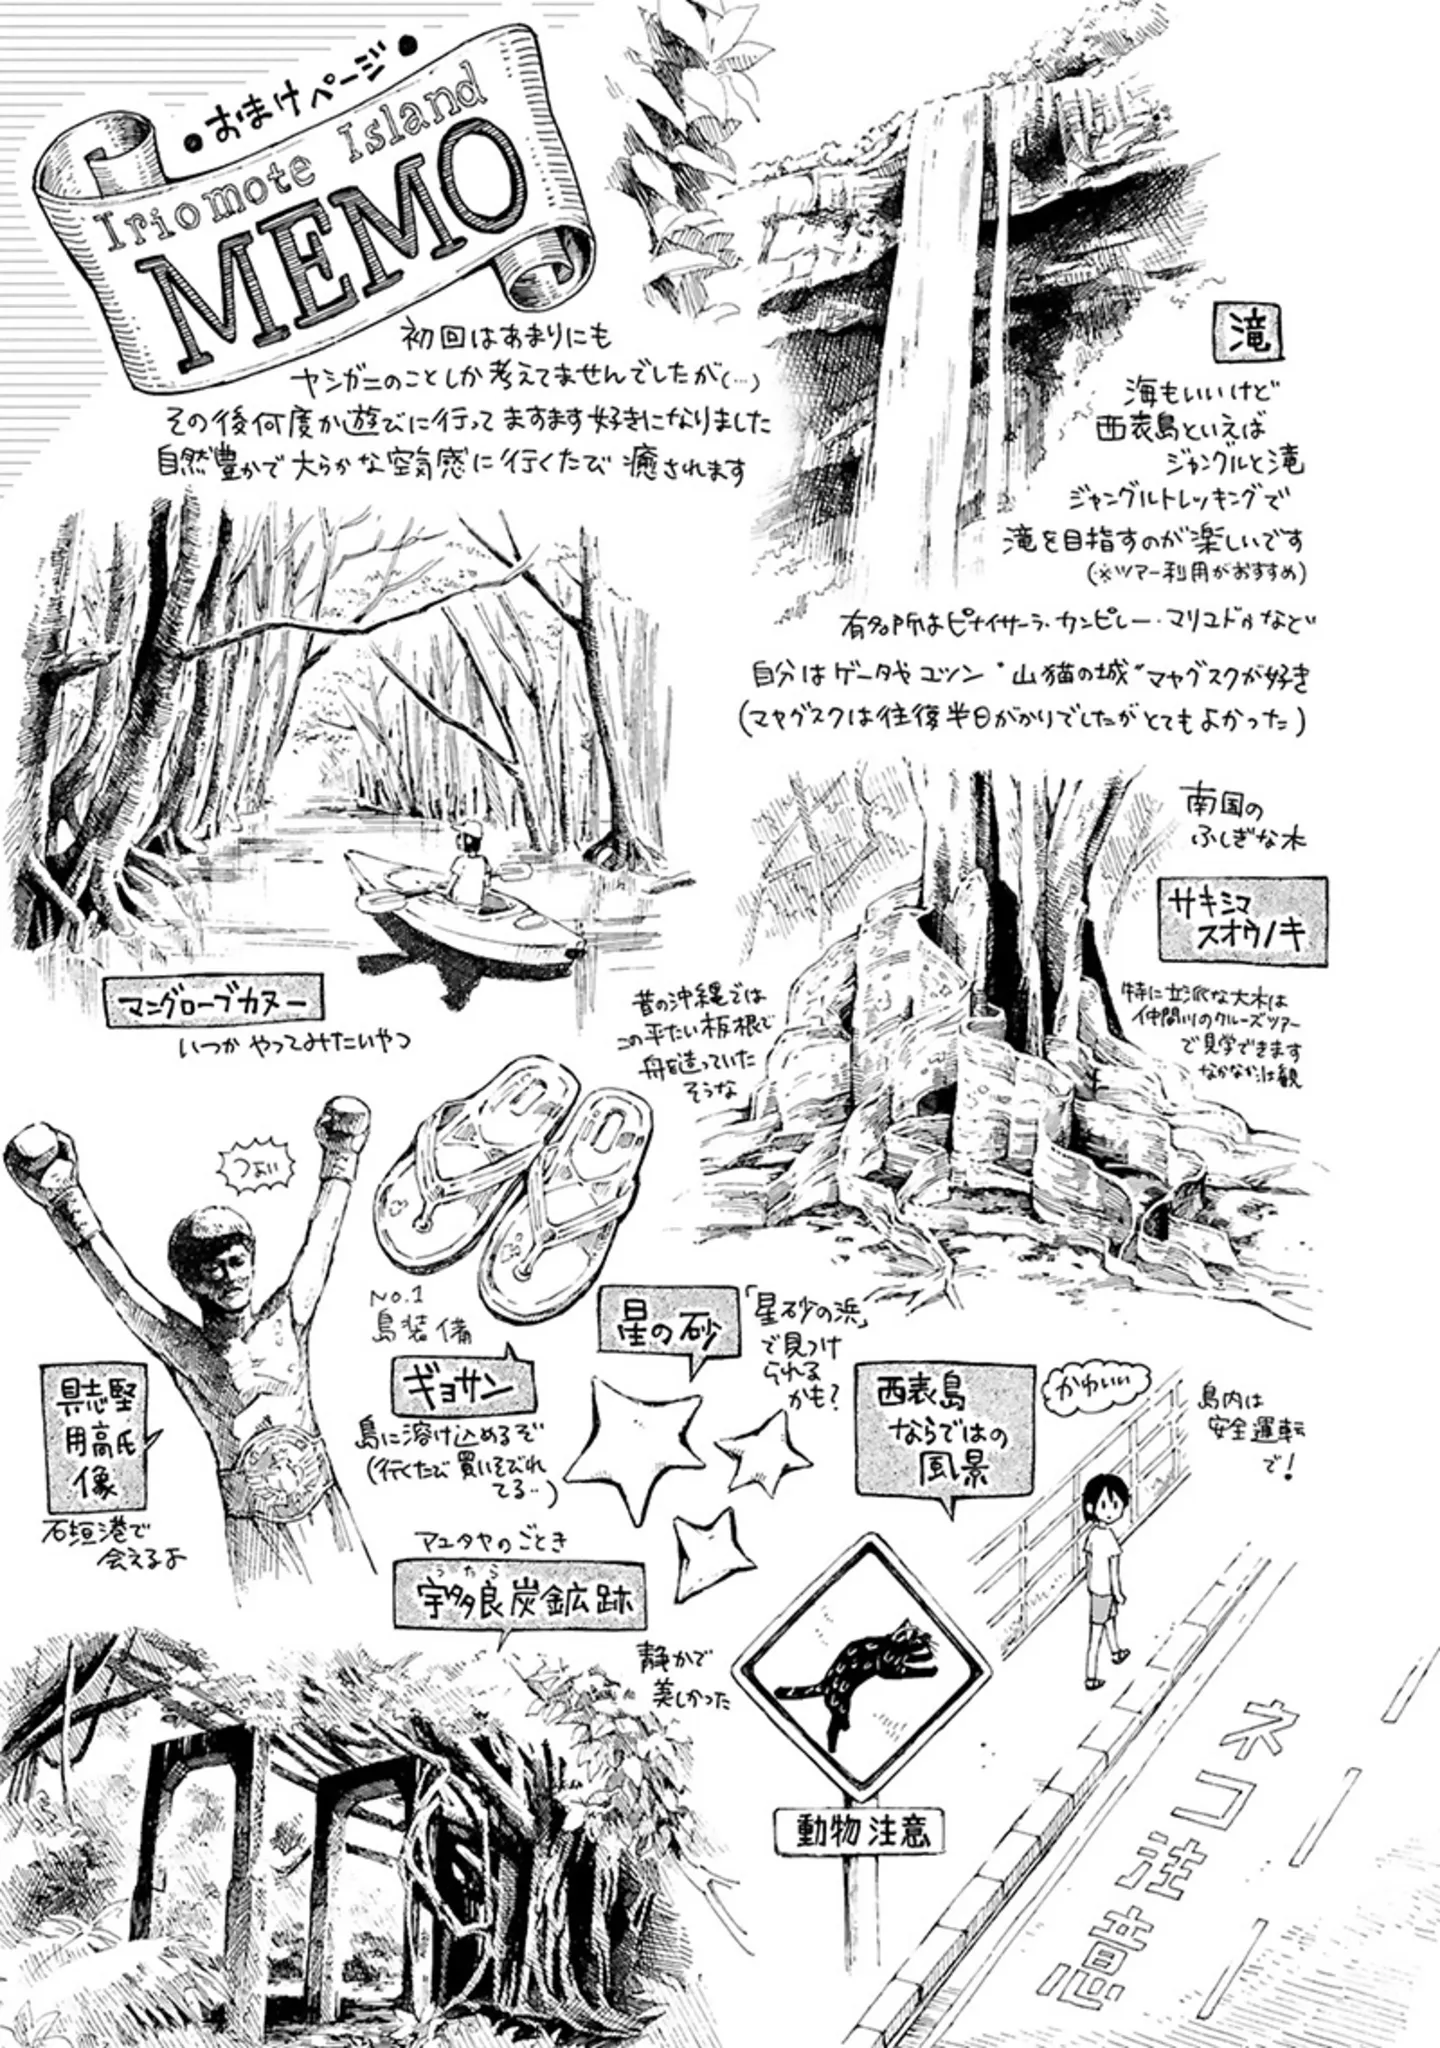 ・おまけページ・
Iriomote Island
MEMO
初回はあまりにも
ヤシガニのことしか考えてませんでしたが(…)
その後何度か遊びに行ってますます好きになりました
自然豊かで大らかな空気感に行くたび癒されます
滝
海もいいけど
西表島といえば
ジャングルと滝
ジャングルトレッキングで
滝を目指すのが楽しいです
(※ツアー利用がおすすめ)
有名所はピナイサーラ・カンピレー・マリユドゥなど
自分はゲータやユツン "山猫の城"マヤグスクが好き
(マヤグスクは往復半日がかりでしたがとてもよかった)
マングローブカヌー
いつかやってみたいやつ
南国の
ふしぎな木
サキシマ
スオウノキ
特に立派な大木は
仲間川のクルーズツアー
で見学できます
なかなかは観
昔の沖縄では
この平たい板根で
舟を造っていた
そうな
つぉい
具志堅
用高氏
像
石垣港で
会えるよ
No.1
島装備
ギョサン
島に溶け込めるぞ
(行くたび買いそびれ
てる‥)
星の砂
「星砂の浜」
で見つけ
られる
かも?
アユタヤのごとき
うたら
宇多良炭鉱跡
静かで
美しかった
西表島
ならではの
風景
かわいい
島内は
安全運転
で!
動物注意
ネコ注意